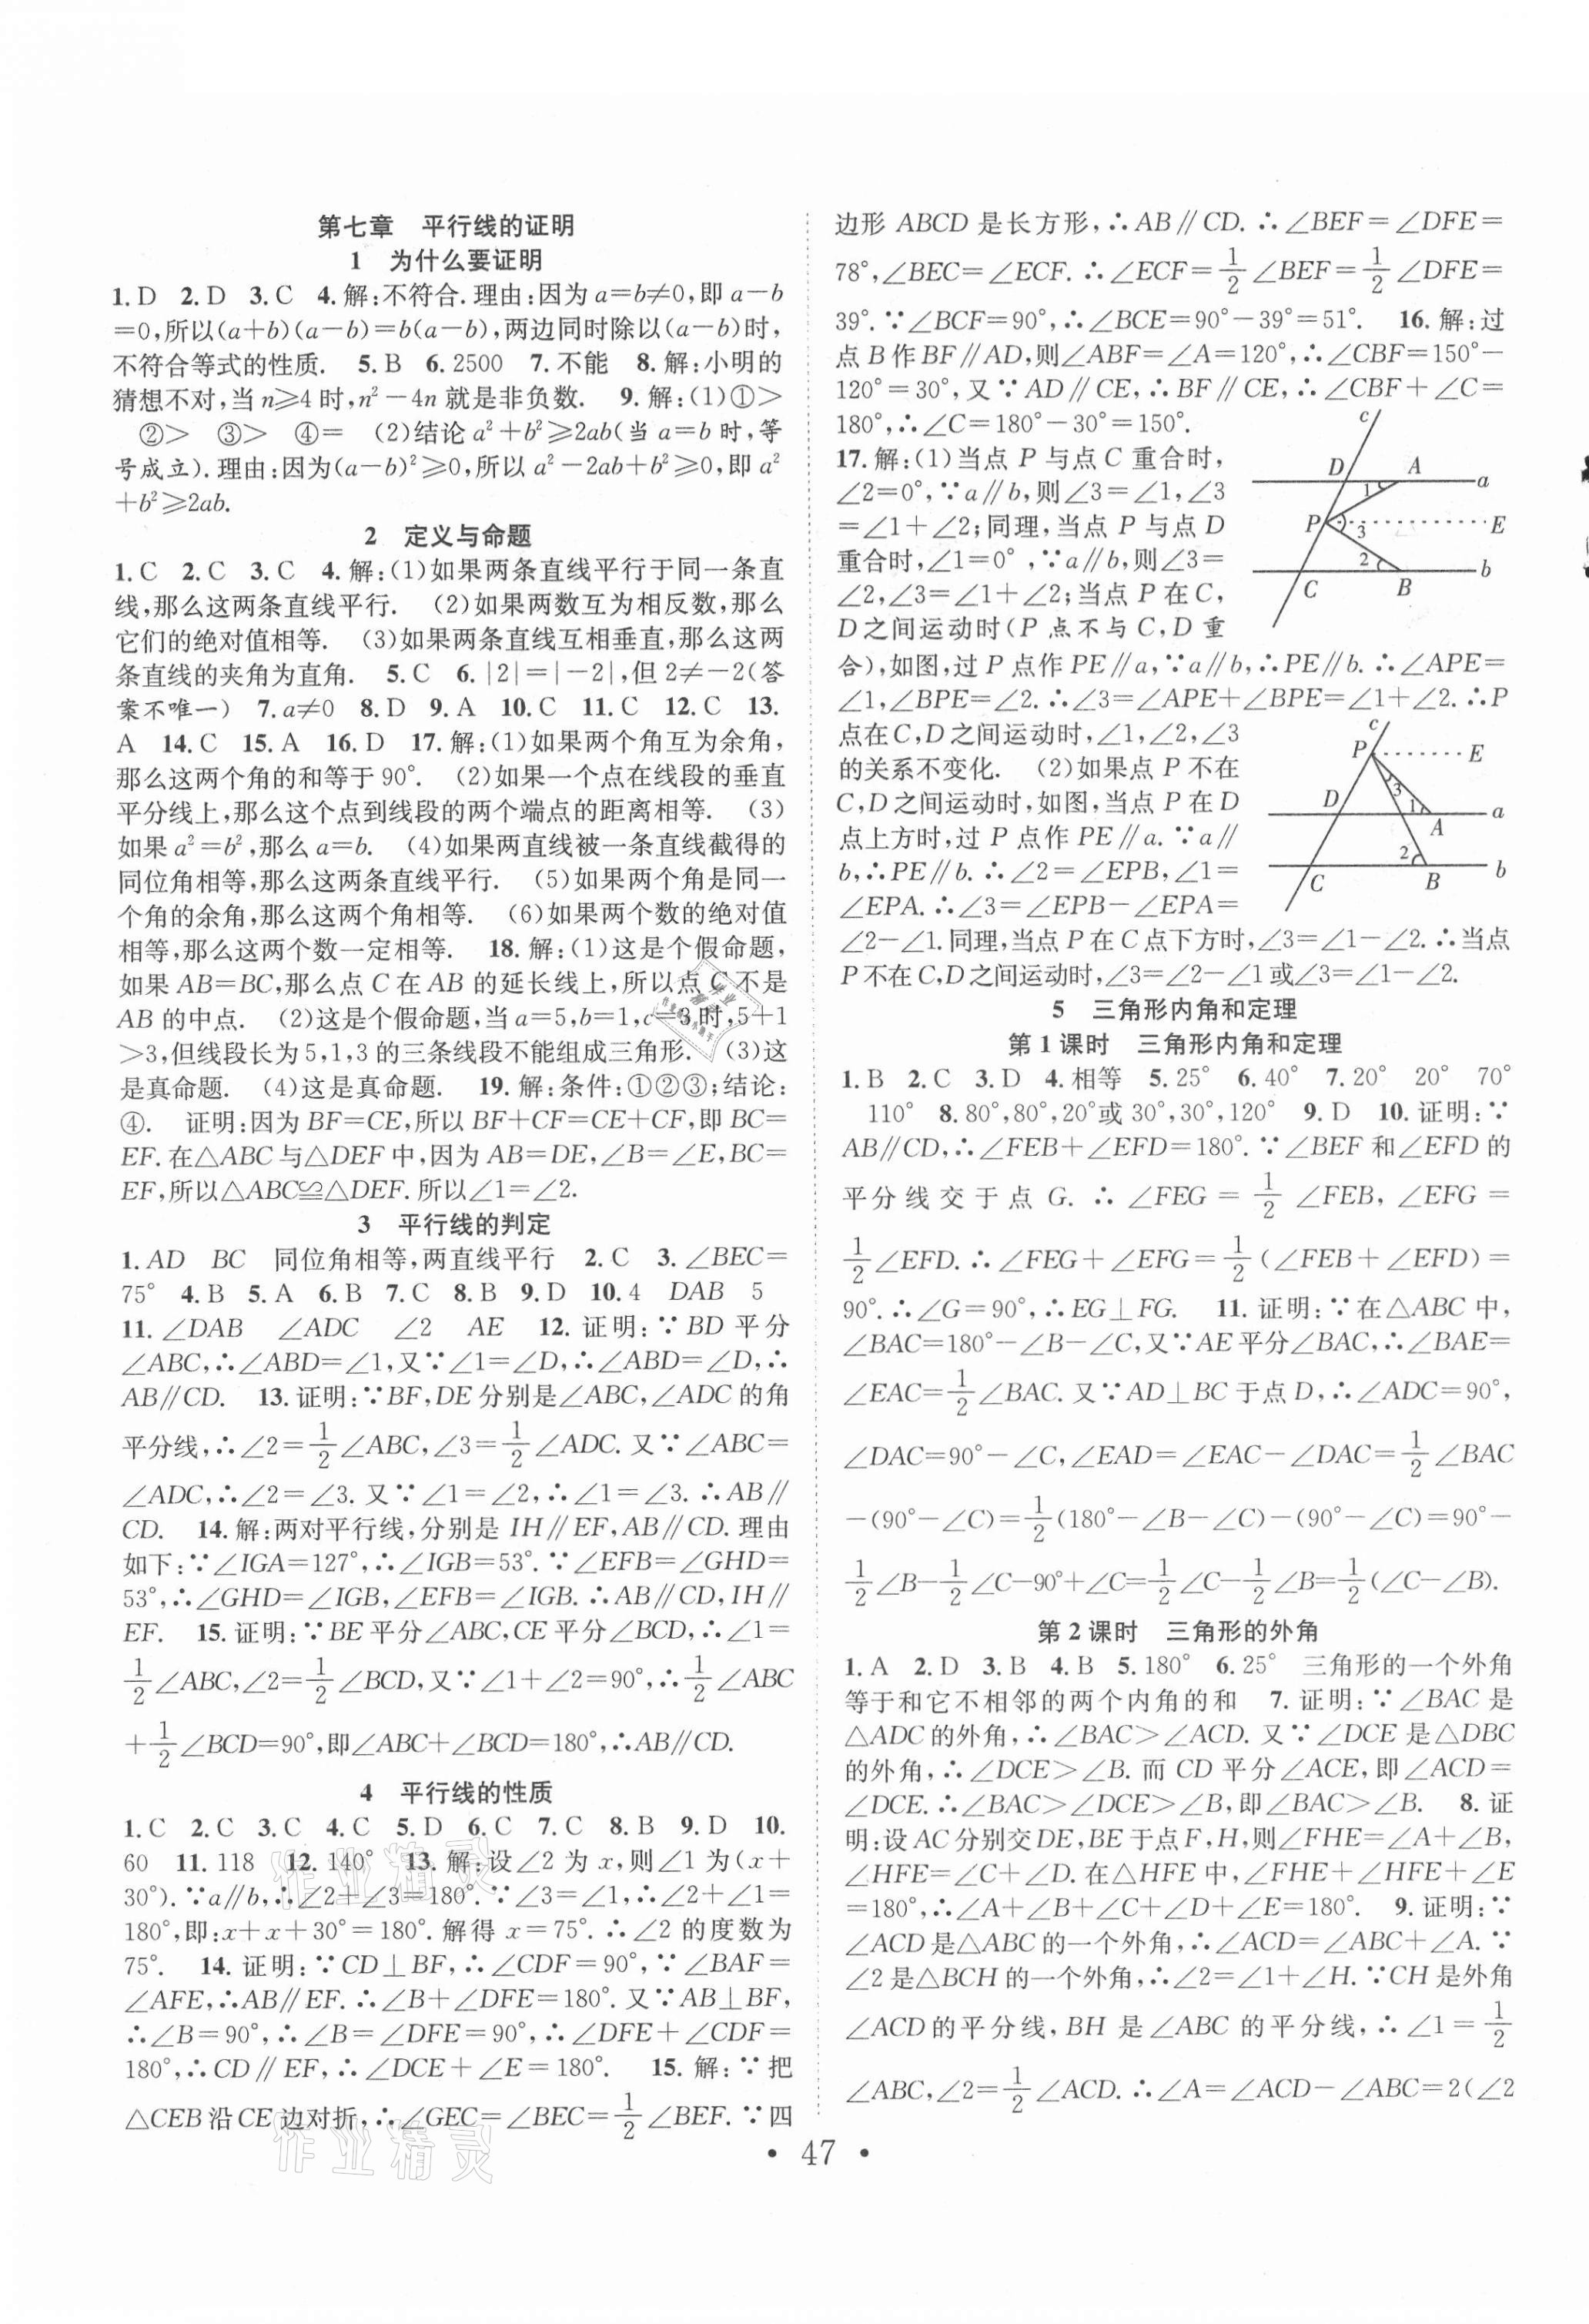 第七章 平行线的证明
1 为什么要证明
1.D 2.D 3.C 4.解:不符合.理由:因为a=b≠0,即a-b
=0,所以(a+b)(a-b)=b(a-b),两边同时除以(a-b)时,
不符合等式的性质. 5.B 6.2500 7.不能 8.解:小明的
猜想不对,当n⩾4时,n²-4n就是非负数. 9.解:(1)①>
②> ③> ④= (2)结论a²+b²⩾2ab(当a=b时,等
号成立).理由:因为(a-b)²⩾0,所以a²-2ab+b²⩾0,即a²
+b²⩾2ab.
2 定义与命题
1.C 2.C 3.C 4.解:(1)如果两条直线平行于同一条直
线,那么这两条直线平行. (2)如果两数互为相反数,那么
它们的绝对值相等. (3)如果两条直线互相垂直,那么这两
条直线的夹角为直角. 5.C 6.|2|=|-2|,但2≠-2(答
案不唯一) 7.a≠0 8.D 9.A 10.C 11.C 12.C 13.
A 14.C 15.A 16.D 17.解:(1)如果两个角互为余角,
那么这两个角的和等于90°. (2)如果一个点在线段的垂直
平分线上,那么这个点到线段的两个端点的距离相等. (3)
如果a²=b²,那么a=b. (4)如果两直线被一条直线截得的
同位角相等,那么这两条直线平行. (5)如果两个角是同一
个角的余角,那么这两个角相等. (6)如果两个数的绝对值
相等,那么这两个数一定相等. 18.解:(1)这是个假命题,
如果AB=BC,那么点C在AB的延长线上,所以点C不是
AB的中点. (2)这是个假命题,当a=5,b=1,c=3时,5+1
>3,但线段长为5,1,3的三条线段不能组成三角形. (3)这
是真命题. (4)这是真命题. 19.解:条件:①②③;结论:
④. 证明:因为BF=CE,所以BF+CF=CE+CF,即BC=
EF.在△ABC与△DEF中,因为AB=DE,∠B=∠E,BC=
EF,所以△ABC≌△DEF.所以∠1=∠2.
3 平行线的判定
1.AD BC 同位角相等,两直线平行 2.C 3.∠BEC=
75° 4.B 5.A 6.B 7.C 8.B 9.D 10.4 DAB 5
11.∠DAB ∠ADC ∠2 AE 12.证明:∵BD平分
∠ABC,∴∠ABD=∠1,又∵∠1=∠D,∴∠ABD=∠D,∴
AB∥CD. 13.证明:∵BF,DE分别是∠ABC,∠ADC的角
平分线,∴∠2=1/2∠ABC,∠3=1/2∠ADC.又∵∠ABC=
∠ADC,∴∠2=∠3.又∵∠1=∠2,∴∠1=∠3.∴AB∥
CD. 14.解:两对平行线,分别是IH∥EF,AB∥CD.理由
如下:∵∠IGA=127°,∴∠IGB=53°.∵∠EFB=∠GHD=
53°,∴∠GHD=∠IGB,∠EFB=∠IGB.∴AB∥CD,IH∥
EF. 15.证明:∵BE平分∠ABC,CE平分∠BCD,∴∠1=
1/2∠ABC,∠2=1/2∠BCD,又∵∠1+∠2=90°,∴1/2∠ABC
+1/2∠BCD=90°,即∠ABC+∠BCD=180°,∴AB∥CD.
4 平行线的性质
1.C 2.C 3.C 4.C 5.D 6.C 7.C 8.B 9.D 10.
60 11.118 12.140° 13.解:设∠2为x,则∠1为(x+
30°).∵a∥b,∴∠2+∠3=180°.∵∠3=∠1,∴∠2+∠1=
180°,即:x+x+30°=180°.解得x=75°.∴∠2的度数为
75°. 14.证明:∵CD⊥BF,∴∠CDF=90°,∵∠BAF=
∠AFE,∴AB∥EF.∴∠B+∠DFE=180°.又∵AB⊥BF,
∴∠B=90°,∴∠B=∠DFE=90°,∴∠DFE+∠CDF=
180°,∴CD∥EF,∴∠DCE+∠E=180°. 15.解:∵把
△CEB沿CE边对折,∴∠GEC=∠BEC=1/2∠BEF.∵四
边形ABCD是长方形,∴AB∥CD.∴∠BEF=∠DFE=
78°,∠BEC=∠ECF.∴∠ECF=1/2∠BEF=1/2∠DFE=
39°.∵∠BCF=90°,∴∠BCE=90°-39°=51°. 16.解:过
点B作BF∥AD,则∠ABF=∠A=120°,∴∠CBF=150°-
120°=30°,又∵AD∥CE,∴BF∥CE,∴∠CBF+∠C=
180°,∴∠C=180°-30°=150°.
17.解:(1)当点P与点C重合时,
∠2=0°,∵a∥b,则∠3=∠1,∠3
=∠1+∠2;同理,当点P与点D
重合时,∠1=0°,∵a∥b,则∠3=
∠2,∠3=∠1+∠2;当点P在C,
D之间运动时(P点不与C,D重
c
D A
1 a
P 3 E
2 b
C B
合),如图,过P点作PE∥a,∵a∥b,∴PE∥b.∴∠APE=
∠1,∠BPE=∠2.∴∠3=∠APE+∠BPE=∠1+∠2.∴P
点在C,D之间运动时,∠1,∠2,∠3
的关系不变化. (2)如果点P不在
C,D之间运动时,如图,当点P在D
点上方时,过P点作PE∥a.∵a∥
b,∴PE∥b.∴∠2=∠EPB,∠1=
∠EPA.∴∠3=∠EPB-∠EPA=
c
P E
3
D 1 a
A
2 b
C B
∠2-∠1.同理,当点P在C点下方时,∠3=∠1-∠2.∴当点
P不在C,D之间运动时,∠3=∠2-∠1或∠3=∠1-∠2.
5 三角形内角和定理
第1课时 三角形内角和定理
1.B 2.C 3.D 4.相等 5.25° 6.40° 7.20° 20° 70°
110° 8.80°,80°,20°或30°,30°,120° 9.D 10.证明:∵
AB∥CD,∴∠FEB+∠EFD=180°.∵∠BEF和∠EFD的
平分线交于点G.∴∠FEG=1/2∠FEB,∠EFG=
1/2∠EFD.∴∠FEG+∠EFG=1/2(∠FEB+∠EFD)=
90°.∴∠G=90°,∴EG⊥FG. 11.证明:∵在△ABC中,
∠BAC=180°-∠B-∠C,又∵AE平分∠BAC,∴∠BAE=
∠EAC=1/2∠BAC.又∵AD⊥BC于点D,∴∠ADC=90°,
∠DAC=90°-∠C,∠EAD=∠EAC-∠DAC=1/2∠BAC
-(90°-∠C)=1/2(180°-∠B-∠C)-(90°-∠C)=90°-
1/2∠B-1/2∠C-90°+∠C=1/2∠C-1/2∠B=1/2(∠C-∠B).
第2课时 三角形的外角
1.A 2.D 3.B 4.B 5.180° 6.25° 三角形的一个外角
等于和它不相邻的两个内角的和 7.证明:∵∠BAC是
△ADC的外角,∴∠BAC>∠ACD.又∵∠DCE是△DBC
的外角,∴∠DCE>∠B.而CD平分∠ACE,即∠ACD=
∠DCE.∴∠BAC>∠DCE>∠B,即∠BAC>∠B. 8.证
明:设AC分别交DE,BE于点F,H,则∠FHE=∠A+∠B,
∠HFE=∠C+∠D.在△HFE中,∠FHE+∠HFE+∠E
=180°,∴∠A+∠B+∠C+∠D+∠E=180°. 9.证明:∵
∠ACD是△ABC的一个外角,∴∠ACD=∠ABC+∠A.∵
∠2是△BCH的一个外角,∴∠2=∠1+∠H.∵CH是外角
∠ACD的平分线,BH是∠ABC的平分线,∴∠1=1/2
∠ABC,∠2=1/2∠ACD.∴∠A=∠ACD-∠ABC=2(∠2
• 47 •
作业精灵
作业精灵